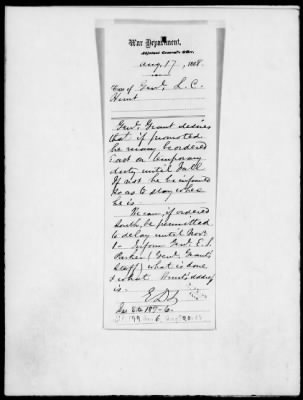 War Department,
Adjutant General's Office,
Aug. 17, 1868.
Case of Genl. L. C.
Hunt
Genl. Grant desires
that if promoted
he may be ordered
East on temporary
duty until Fall
If not he be
so as to stay where
he is.
He can, if ordered
South, be permitted
to delay until Nov.
1 - Inform Genl. E. S.
Parker (Genl. Grant's
Staff) what is done
& what Hunt's address
is.